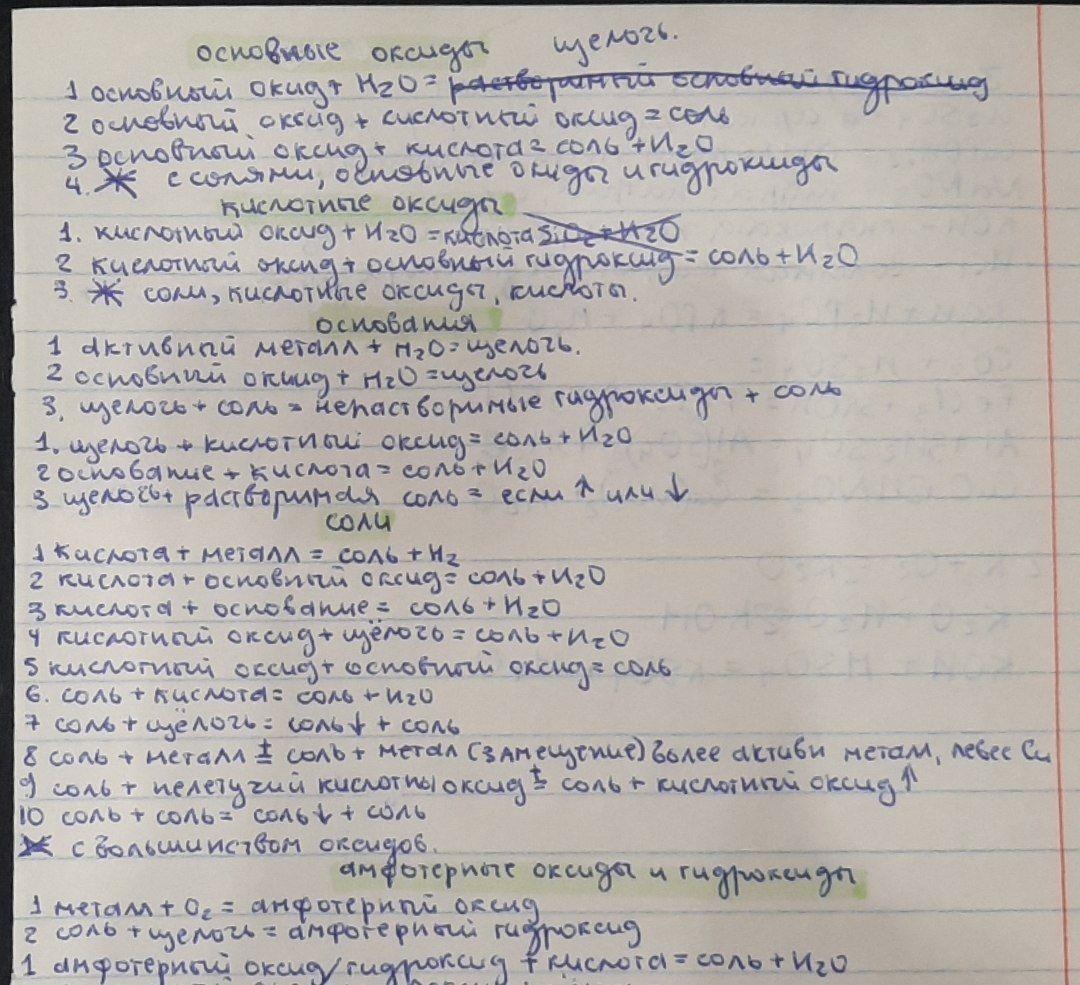 основные оксиды щелочь.
1 основный окид + H2O = растворимый основный гидроксид
2 основный оксид + кислотный оксид = соль
3 основный оксид + кислота = соль + H2O
4. ж с солями, основные окиды и гидрокиды
кислотные оксиды
1. кислотный оксид + H2O = кислота SiO2 + H2O
2 кислотный оксид + основный гидроксид = соль + H2O
3. ж соли, кислотные оксиды, кислоты.
основания
1 активный металл + H2O = щелочь.
2 основный оксид + H2O = щелочь
3, щелочь + соль = нерастворимые гидроксиды + соль
1. щелочь + кислотный оксид = соль + H2O
2 основание + кислота = соль + H2O
3 щелочь + растворимая соль = если ↑ или ↓
соли
1 кислота + металл = соль + H2
2 кислота + основный оксид = соль + H2O
3 кислота + основание = соль + H2O
4 кислотный оксид + щёлочь = соль + H2O
5 кислотный оксид + основный оксид = соль
6. соль + кислота = соль + H2O
7 соль + щёлочь = соль↓ + соль
8 соль + металл t= соль + метал (замещение) более активн метал, левее Cu
9 соль + нелетучий кислотны оксид t= соль + кислотный оксид↑
10 соль + соль = соль↓ + соль
ж с большинством оксидов.
амфотерные оксиды и гидроксиды
1 металл + O2 = амфотерный оксид
2 соль + щелочь = амфотерный гидроксид
1 амфотерный оксид/гидроксид + кислота = соль + H2O